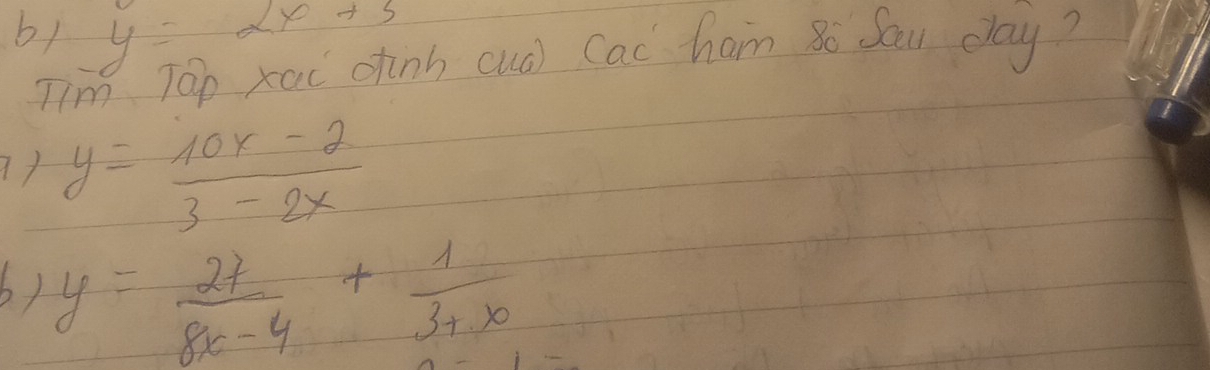 b) y = 2x + 3
Tìm Tập xác định của các hàm số sau đây?
a) y = \frac{10x - 2}{3 - 2x}
b) y = \frac{27}{8x - 4} + \frac{1}{3 + x}